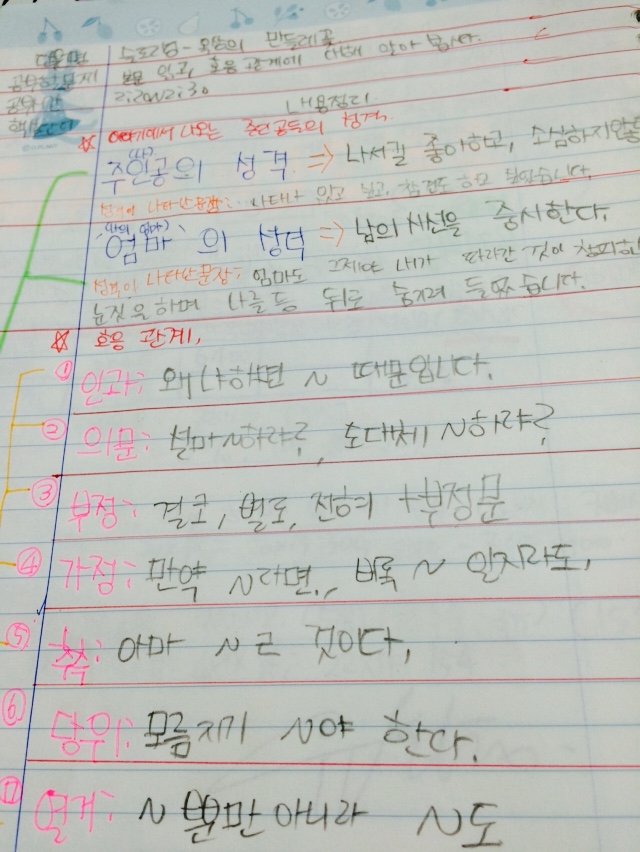 단원명 수프리덤-옥상의 민들레꽃
공부할 문제 본문 읽고, 호응 관계에 대해 알아 봅시다.
공부시간 2:20~2:30
내용정리
☆ 이야기에서 나오는 중인공들의 성격.
주인공의 (나) 성격 ⇒ 나서길 좋아하고, 소심하지않
성격이 나타난 문장:
엄마의 (나의 엄마) 성격 ⇒ 남의 시선을 중시한다.
성격이 나타난 문장: 엄마도 그제야 내가 따라간 것이 창피하
눈짓을 하며 나를 등 뒤로 숨기려 들었습니다.
☆ 호응 관계,
① 인과: 왜냐하면 ~ 때문입니다.
② 의문: 설마~하랴?, 도대체 ~하랴?
③ 부정: 결코, 별로, 전혀 +부정문
④ 가정: 만약 ~라면., 비록 ~ 일지라도,
⑤ 추측: 아마 ~ㄹ 것이다,
⑥ 당위: 모름지기 ~야 한다.
⑦ 열거: ~ 뿐만아니라 ~도